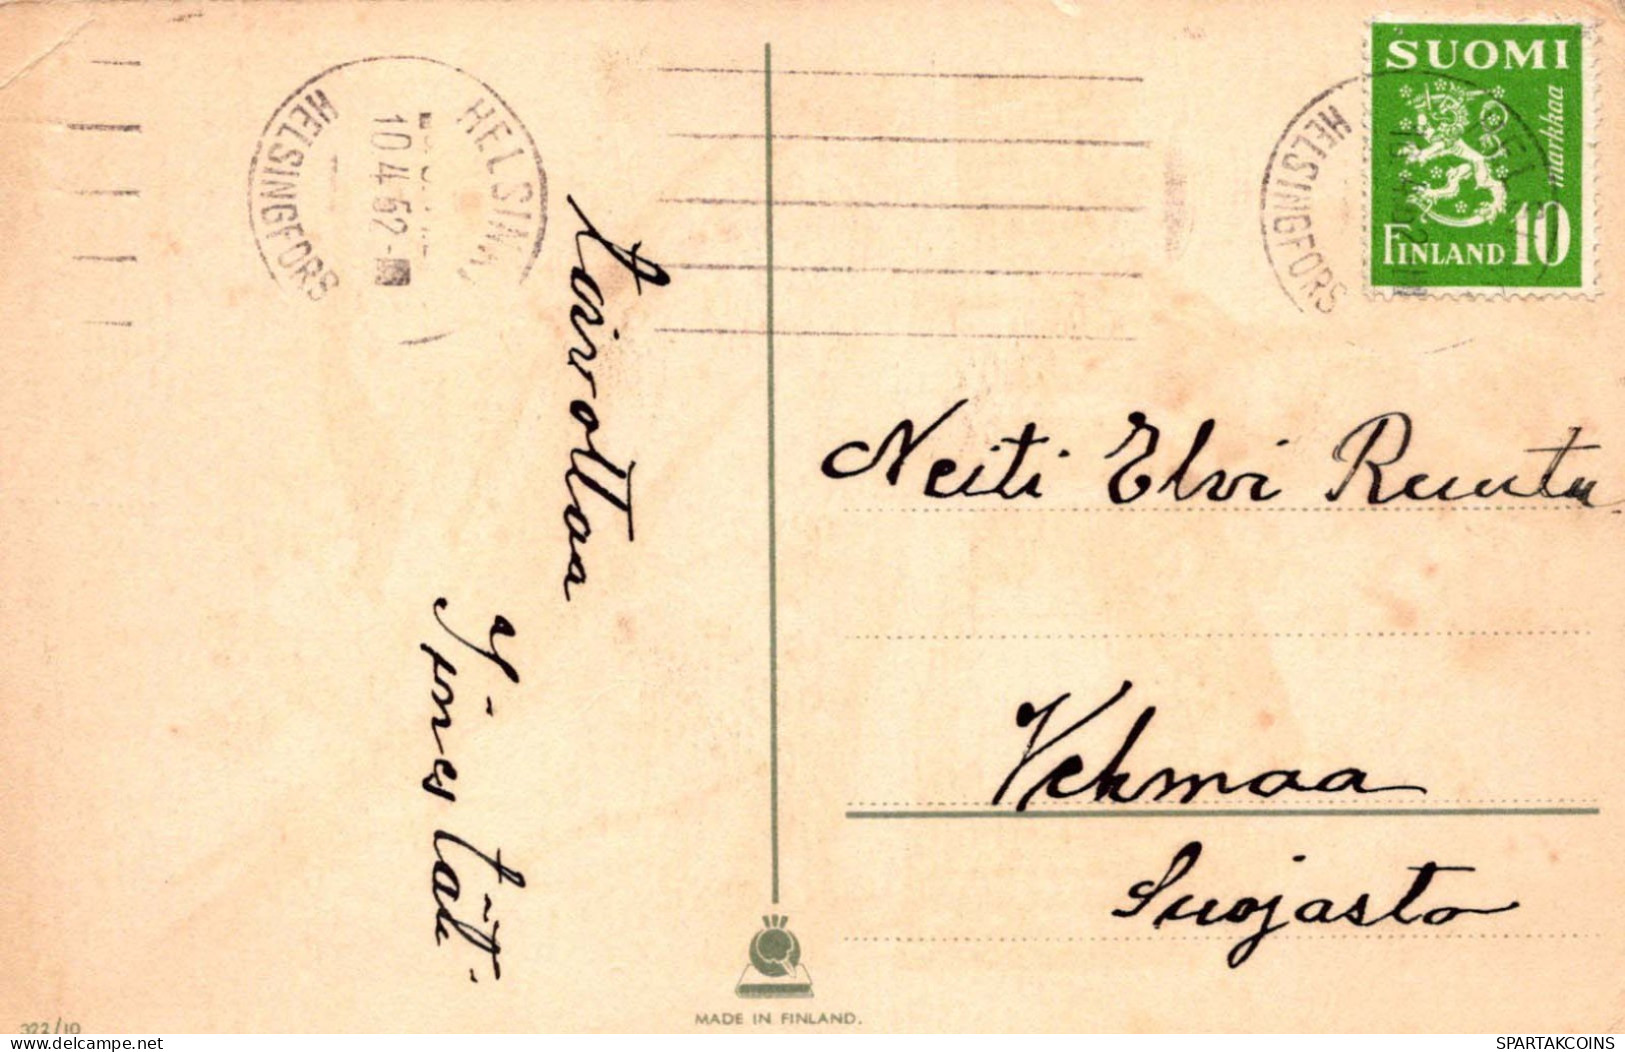 HELSINKI
HELSINGFORS
10.4.52
SUOMI
markkaa
FINLAND 10
HELSINGFORS
Toivottaa
täti
Neiti Elvi Ruutu
Vehmaa
Suojasto
MADE IN FINLAND.
322/10
SPARTAKCOINS
www.delcampe.net